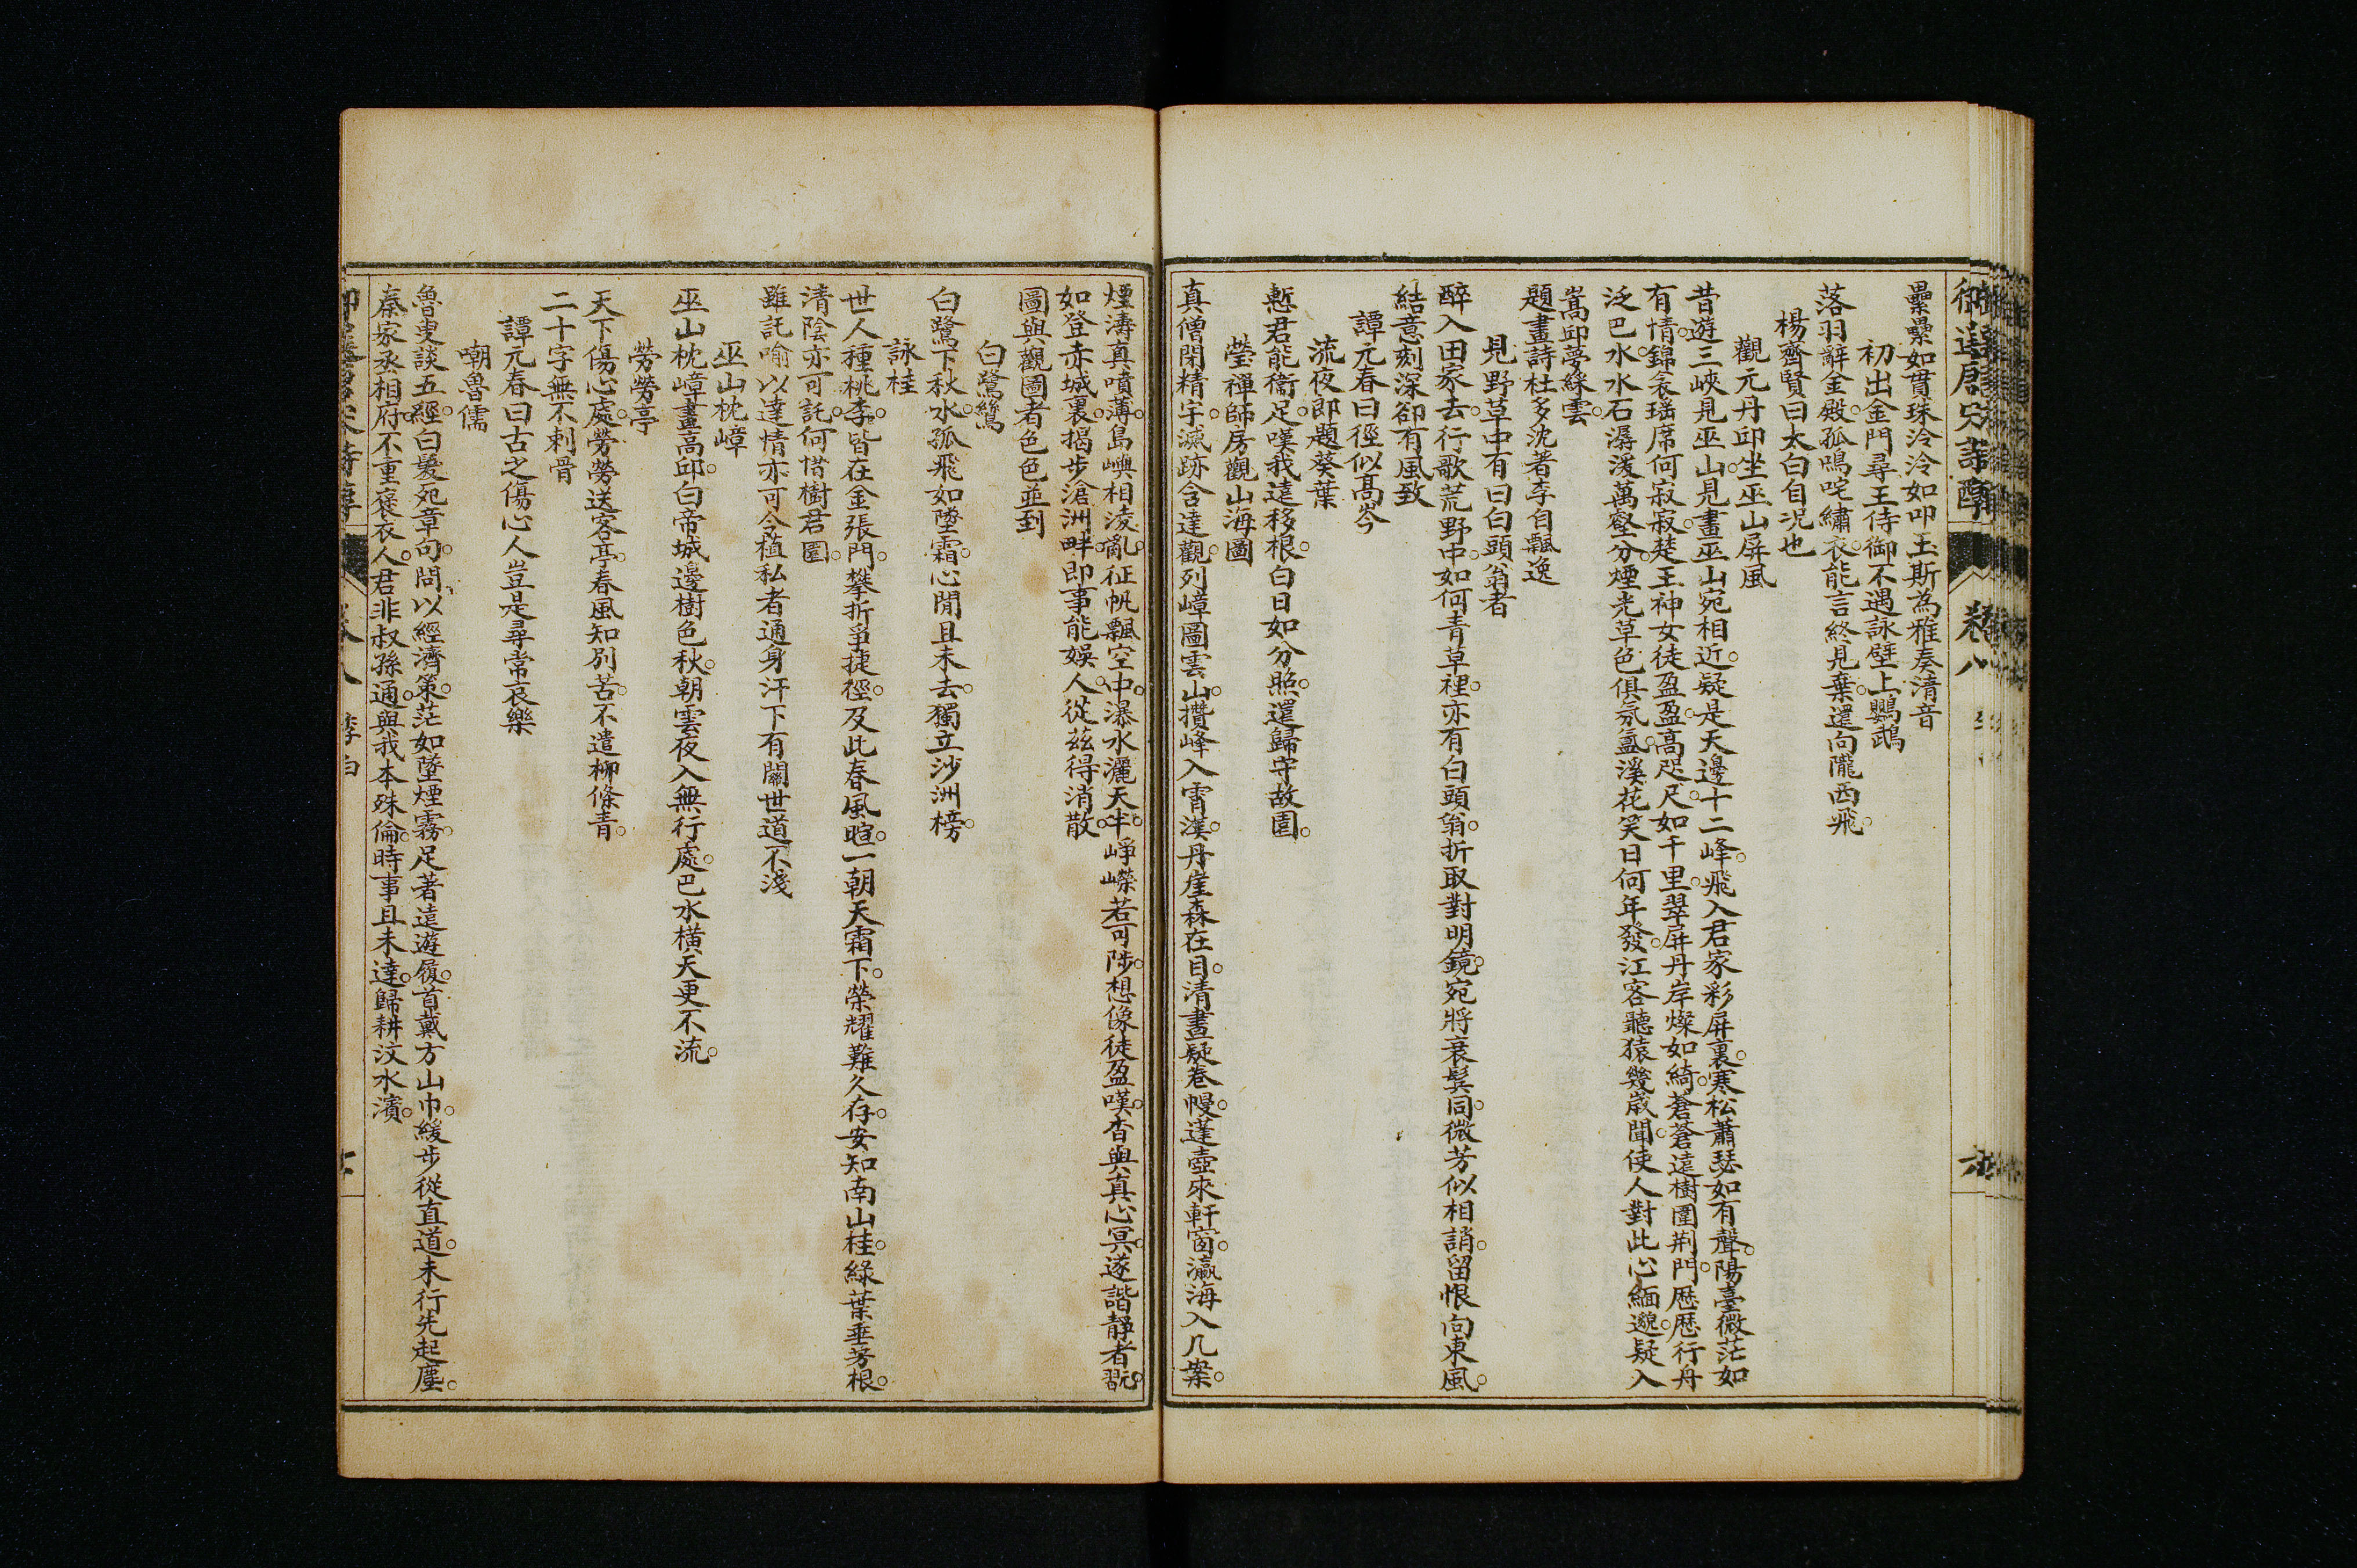 御選唐宋詩醇
卷八
六
纍纍如貫珠泠泠如叩玉斯為雅奏清音
初出金門尋王侍御不遇詠壁上鸚鵡
落羽辭金殿。孤鳴咤繡衣。能言終見棄。還向隴西飛。
楊齊賢曰太白自况也
觀元丹邱坐巫山屏風
昔遊三峽見巫山。見畫巫山宛相近。疑是天邊十二峰。飛入君家彩屏裏。寒松蕭瑟如有聲。陽臺微茫如
有情。錦衾瑶席何寂寂。楚王神女徒盈盈。高咫尺。如千里。翠屏丹崖燦如綺。蒼蒼遠樹圍荆門。歷歷行舟
泛巴水。水石潺湲萬壑分。煙光草色俱氛氳。溪花笑日何年發。江客聽猿幾歲聞。使人對此心緬邈。疑入
嵩邱夢綵雲。
題畫詩杜多沈著李自飄逸
見野草中有曰白頭翁者
醉入田家去。行歌荒野中。如何青草裡。亦有白頭翁。折取對明鏡。宛將衰鬂同。微芳似相誚。留恨向東風。
結意刻深卻有風致
譚元春曰徑似高岑
流夜郎題葵葉
慙君能衛足。嘆我遠移根。白日如分照。還歸守故園。
瑩禪師房觀山海圖
真僧閉精宇。滅跡含達觀。列嶂圖雲山。攢峰入霄漢。丹崖森在目。清晝疑卷幔。蓬壺來軒窗。瀛海入几案。
煙濤真噴薄。島嶼相淩亂。征帆飄空中。瀑水灑天半。崢嶸若可陟。想像徒盈嘆。杳與真心冥。遂諧静者翫。
如登赤城裏。揭步滄洲畔。即事能娱人。從兹得消散。
圖與觀圖者色色並到
白鷺鷥
白鷺下秋水。孤飛如墜霜。心閒且未去。獨立沙洲榜。
詠桂
世人種桃李。皆在金張門。攀折爭捷徑。及此春風暄。一朝天霜下。榮耀難久存。安知南山桂。綠葉垂芳根。
清陰亦可託。何惜樹君園。
雖託喻以達情亦可令植私者通身汗下有關世道不淺
巫山枕嶂
巫山枕嶂畫高邱。白帝城邊樹色秋。朝雲夜入無行處。巴水橫天更不流。
勞勞亭
天下傷心處。勞勞送客亭。春風知别苦。不遣柳條青。
二十字無不刺骨
譚元春曰古之傷心人豈是尋常哀樂
嘲魯儒
魯叟談五經。白髮死章句。問以經濟策。茫如墜煙霧。足著遠遊履。首戴方山巾。緩步從直道。未行先起塵。
秦家丞相府。不重褒衣人。君非叔孫通。與我本殊倫。時事且未達。歸耕汶水濱。
李白